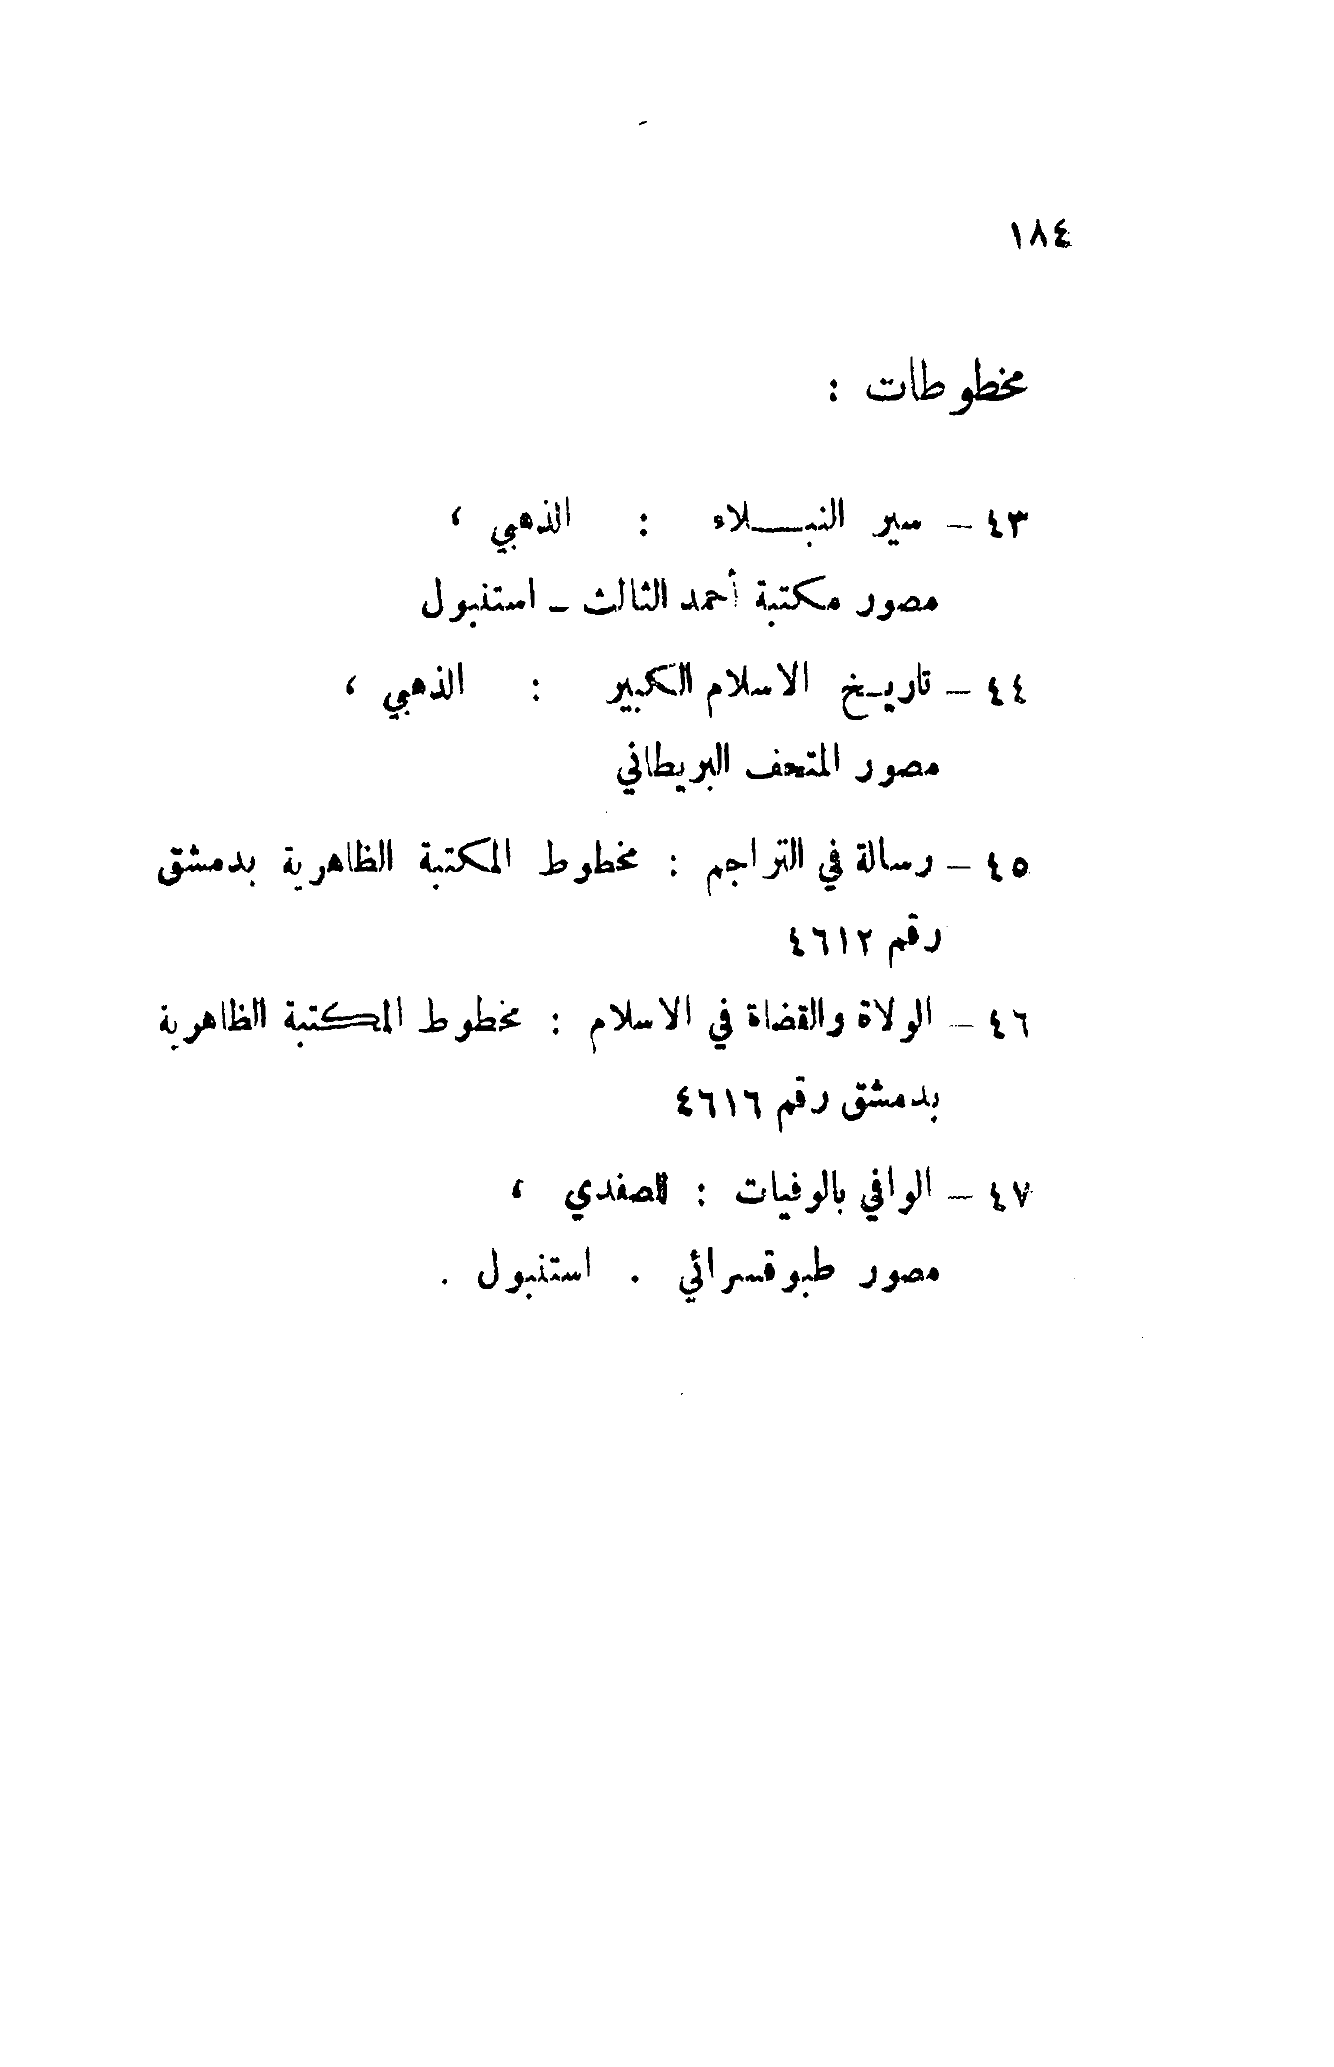 ١٨٤
مخطوطات :
٤٣ – سير النبـــلاء : الذهبي ،
مصور مكتبة أحمد الثالث – استنبول
٤٤ – تاريـخ الاسلام الكبير : الذهبي ،
مصور المتحف البريطاني
٤٥ – رسالة في التراجم : مخطوط المكتبة الظاهرية بدمشق
رقم ٤٦١٢
٤٦ – الولاة والقضاة في الاسلام : مخطوط المكتبة الظاهرية
بدمشق رقم ٤٦١٦
٤٧ – الوافي بالوفيات : للصفدي ،
مصور طبوقسرائي . استنبول .